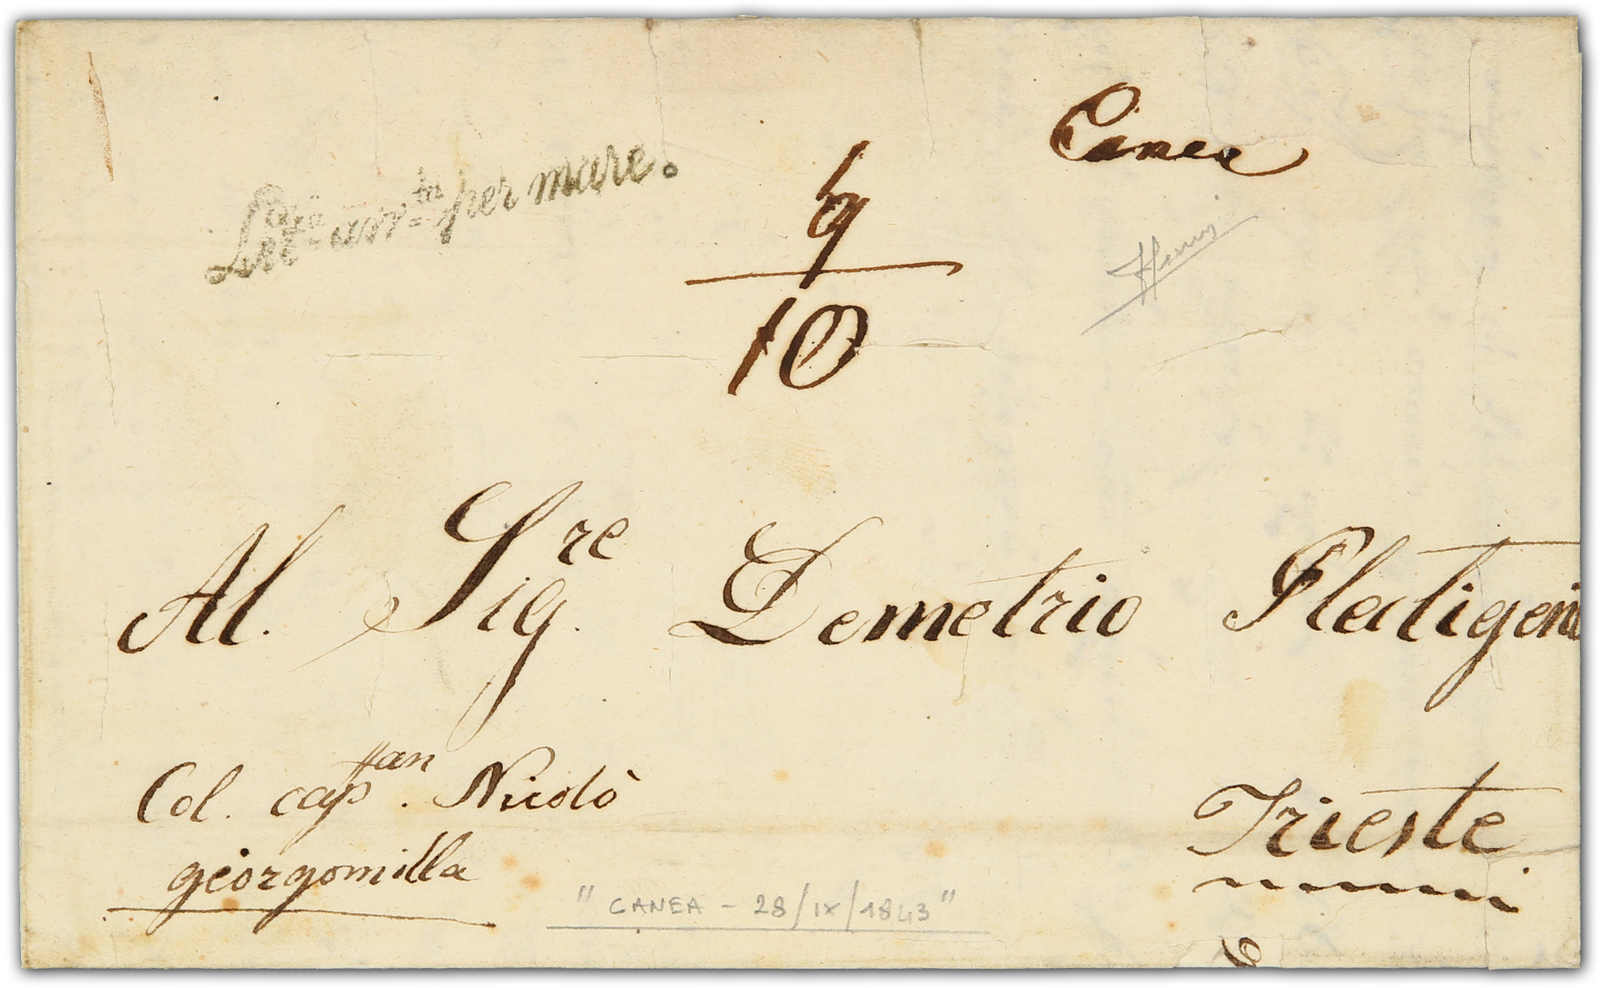 Canea
Let.e arr.te per mare.
10
Al. Sig.re Demetrio
Col. cap.an Nicolò
georgomilla
Trieste
" CANEA - 28/IX/1843 "